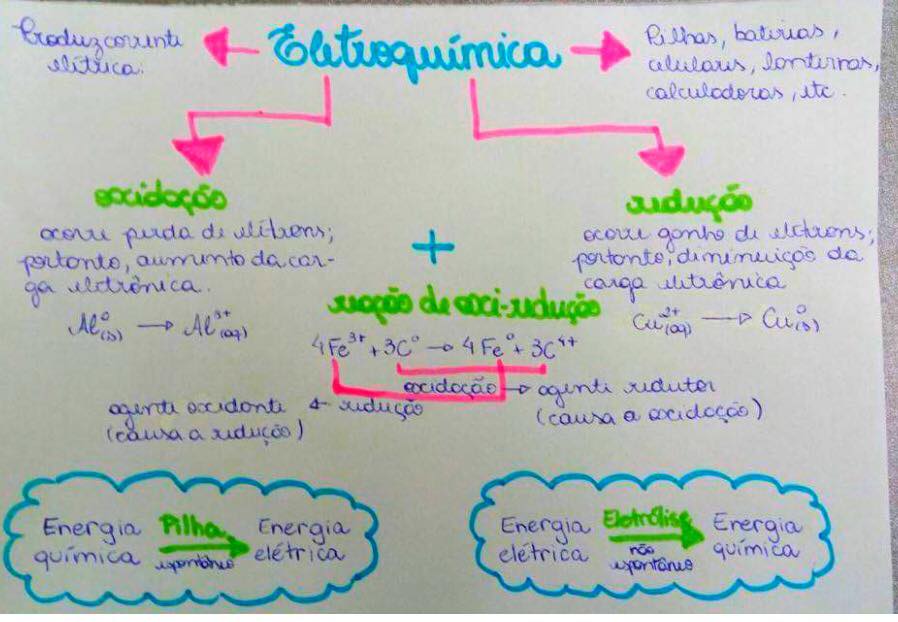 Eletroquímica
Produz corrente
elétrica.
Pilhas, baterias,
celulares, lanternas,
calculadoras, etc.
oxidação
ocorre perda de elétrons;
portanto, aumento da car-
ga eletrônica.
Al⁰(s) → Al³⁺(aq)
+
redução
ocorre ganho de elétrons;
portanto, diminuição da
carga eletrônica
Cu²⁺(aq) → Cu⁰(s)
reação de oxi-redução
4Fe³⁺ + 3C⁰ → 4Fe⁰ + 3C⁴⁺
oxidação → agente redutor
(causa a oxidação)
agente oxidante ← redução
(causa a redução)
Energia Pilha Energia
química espontâneo elétrica
Energia Eletrólise Energia
elétrica não química
espontâneo